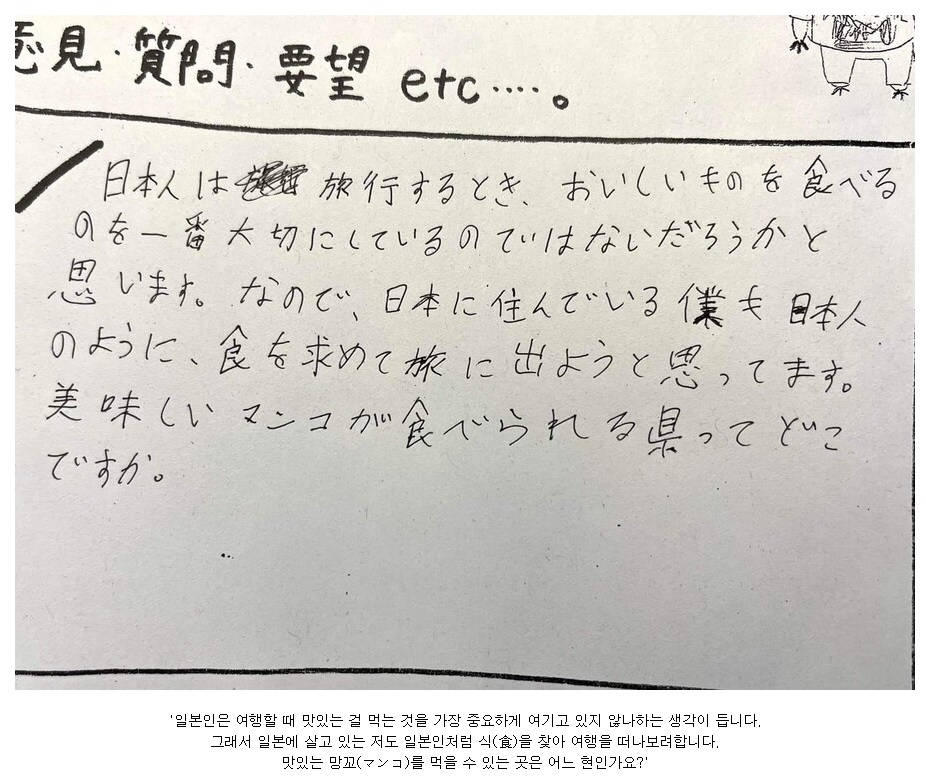 意見・質問・要望 etc‥‥。
日本人は 旅行するとき、おいしいものを食べる
のを一番大切にしているのではないだろうかと
思います。なので、日本に住んでいる僕も日本人
のように、食を求めて旅に出ようと思ってます。
美味しいマンコが食べられる県ってどこ
ですか。
'일본인은 여행할 때 맛있는 걸 먹는 것을 가장 중요하게 여기고 있지 않나하는 생각이 듭니다.
그래서 일본에 살고 있는 저도 일본인처럼 식(食)을 찾아 여행을 떠나보려합니다.
맛있는 망꼬(マンコ)를 먹을 수 있는 곳은 어느 현인가요?'